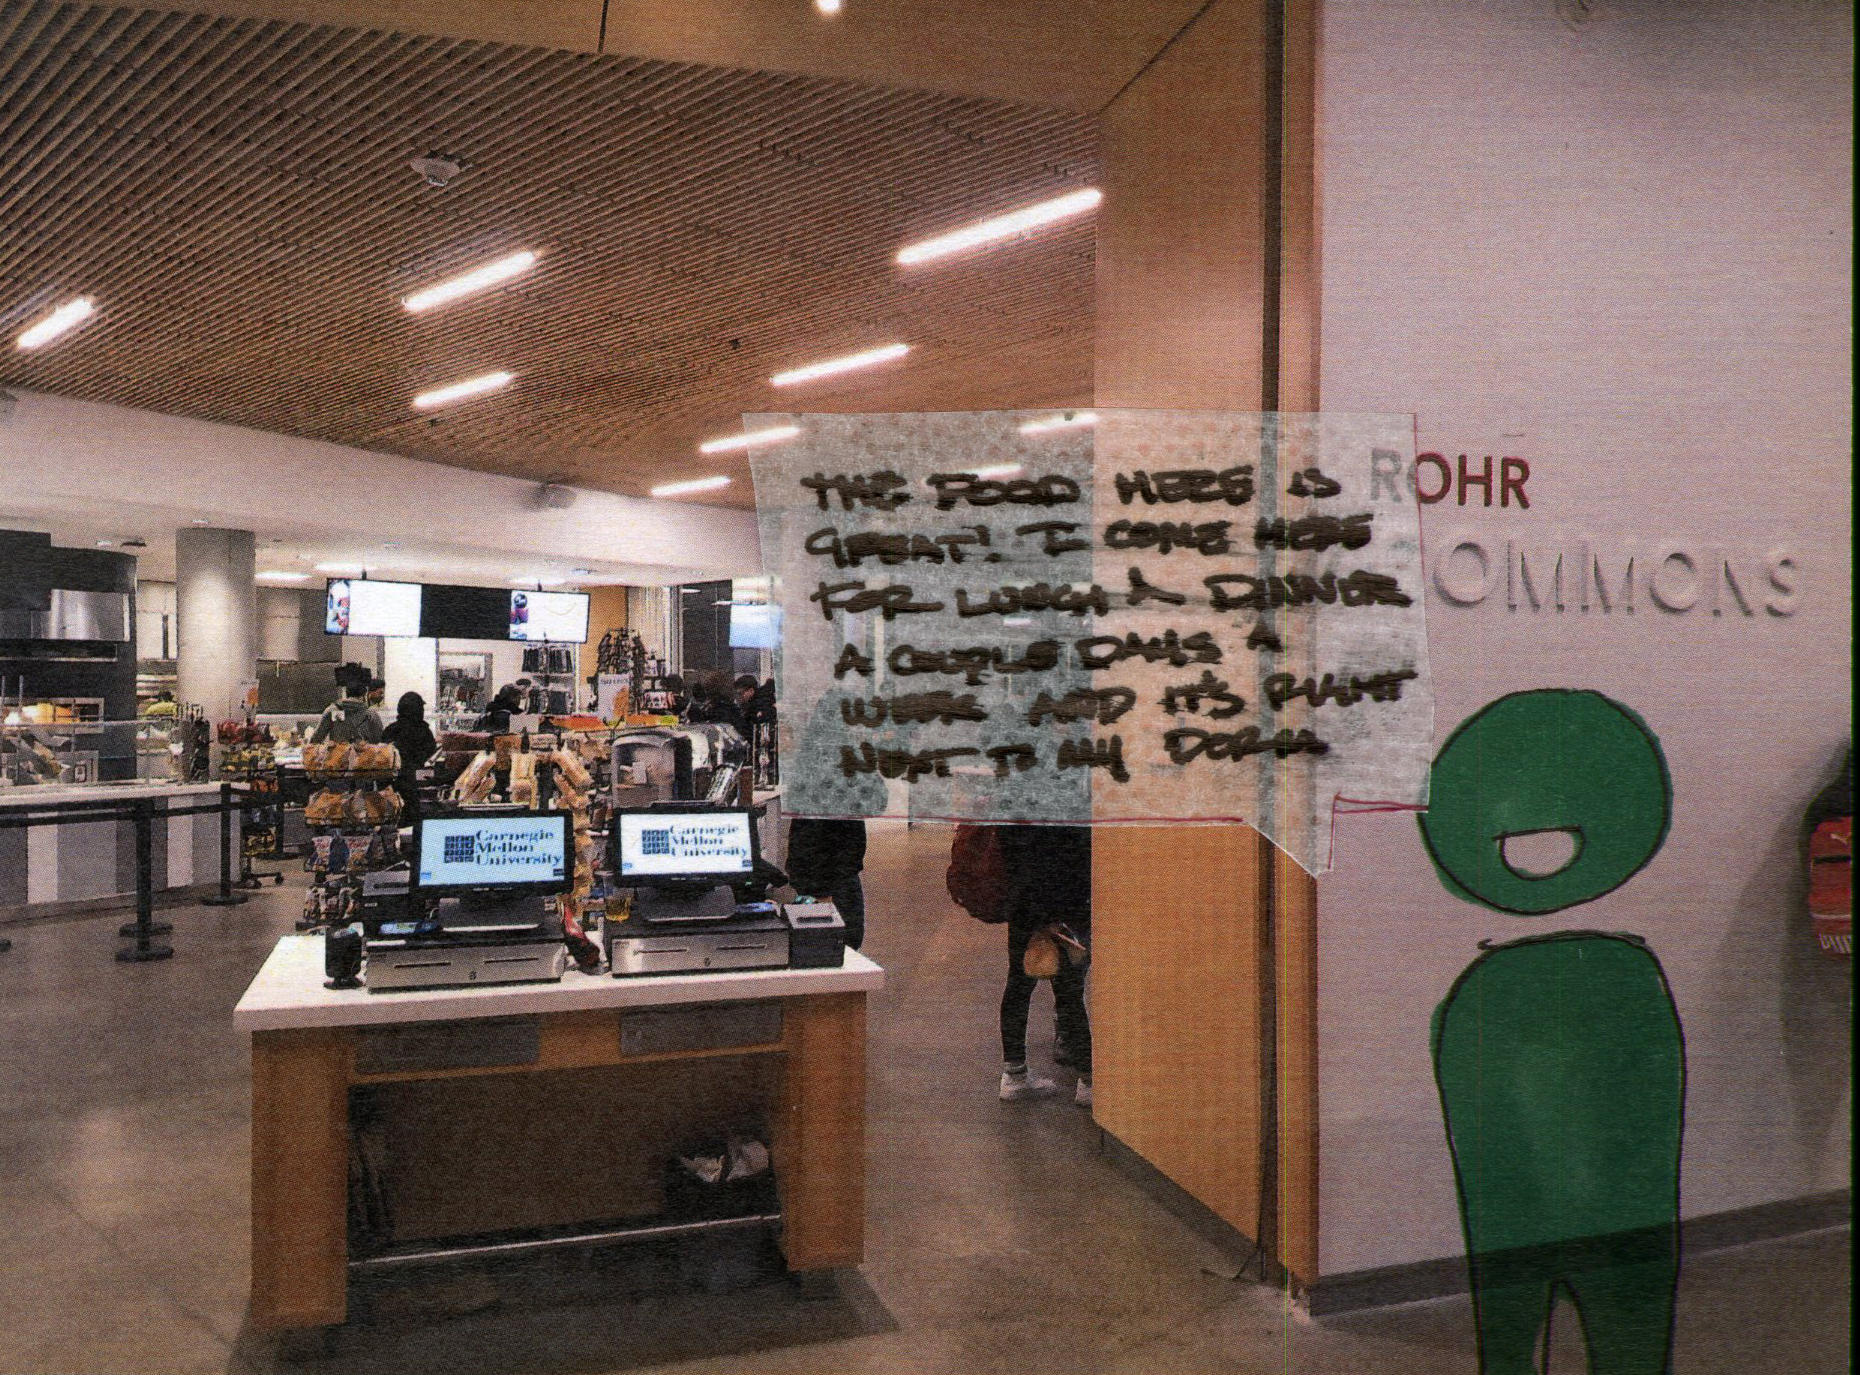 THE FOOD HERE IS
GREAT! I COME HERE
FOR LUNCH & DINNER
A COUPLE DAYS A
WEEK AND IT'S RIGHT
NEXT TO MY DORM
ROHR
COMMONS
Carnegie
Mellon
University
Carnegie
Mellon
University